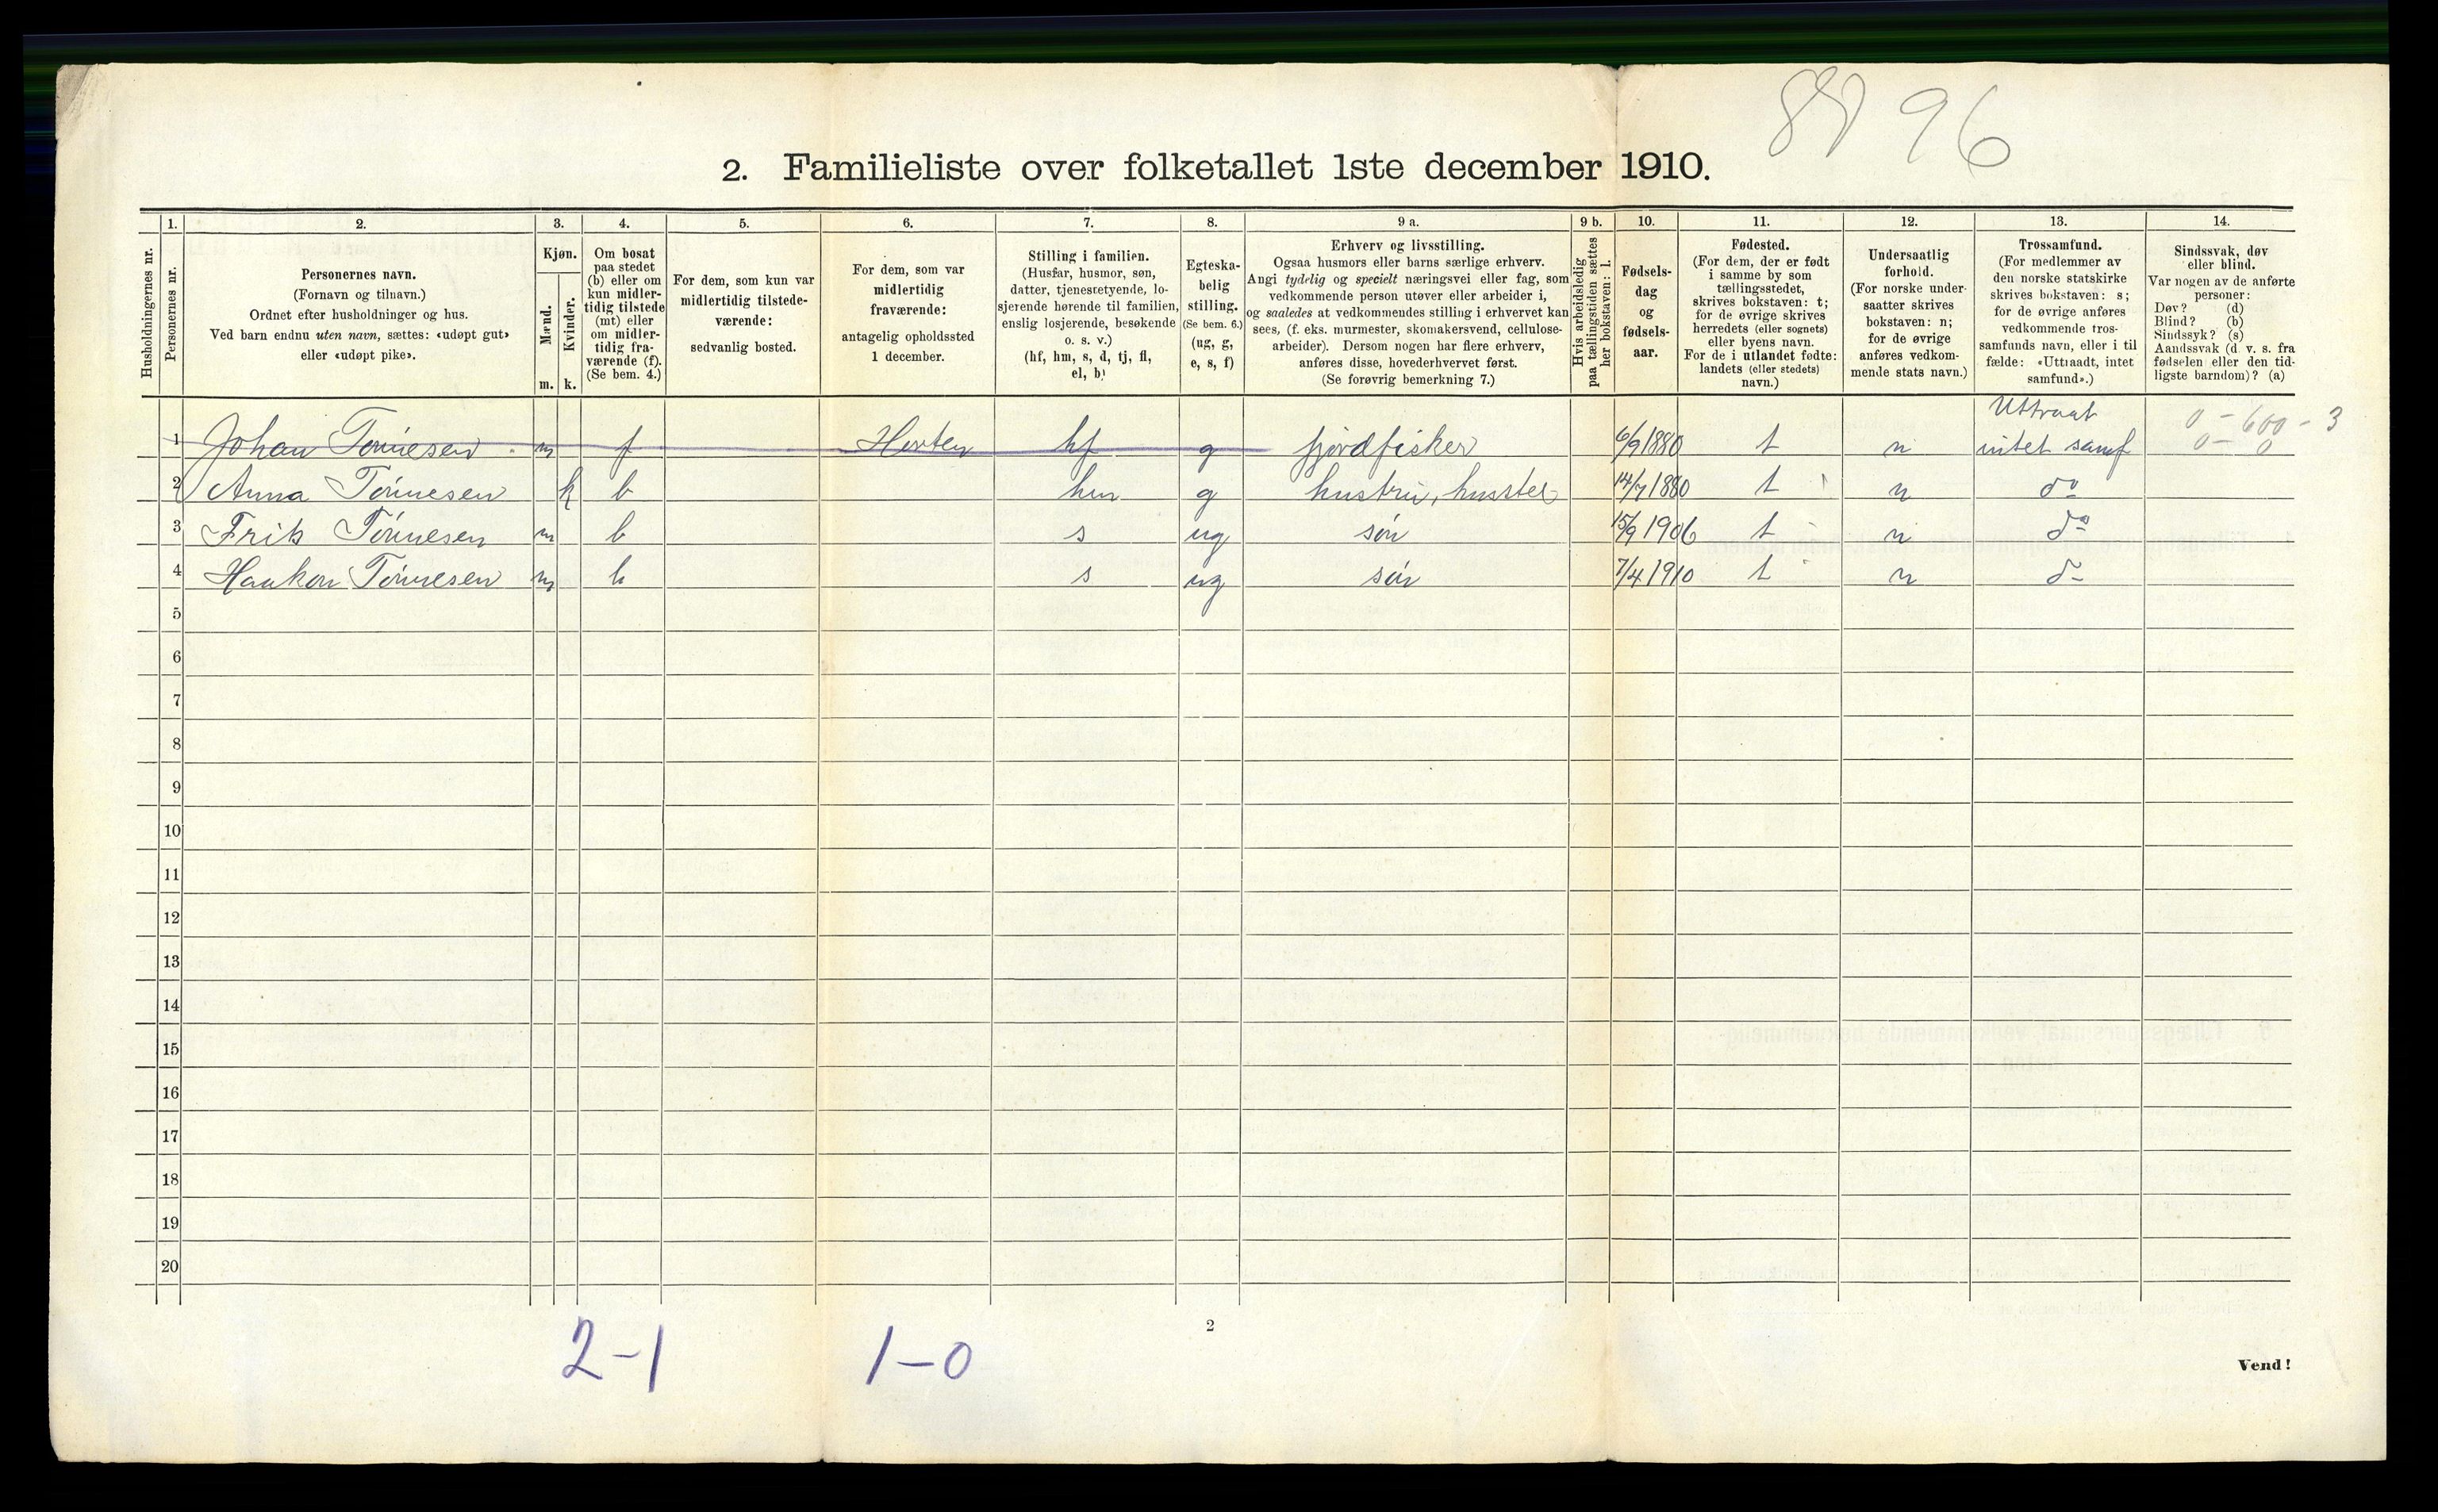 96
2. Familieliste over folketallet 1ste december 1910.
Husholdningernes nr.
1.
Personernes nr.
2.
Personernes navn.
(Fornavn og tilnavn.)
Ordnet efter husholdninger og hus.
Ved barn endnu uten navn, sættes: «udøpt gut»
eller «udøpt pike».
3.
Kjøn.
Mænd.
m.
Kvinder.
k.
4.
Om bosat
paa stedet
(b) eller om
kun midler-
tidig tilstede
(mt) eller
om midler-
tidig fra-
værende (f).
(Se bem. 4.)
5.
For dem, som kun var
midlertidig tilstede-
værende:
sedvanlig bosted.
6.
For dem, som var
midlertidig
fraværende:
antagelig opholdssted
1 december.
7.
Stilling i familien.
(Husfar, husmor, søn,
datter, tjenestetyende, lo-
sjerende hørende til familien,
enslig losjerende, besøkende
o. s. v.)
(hf, hm, s, d, tj, fl,
el, b)
8.
Egteska-
belig
stilling.
(Se bem. 6.)
(ug, g,
e, s, f)
9 a.
Erhverv og livsstilling.
Ogsaa husmors eller barns særlige erhverv.
Angi tydelig og specielt næringsvei eller fag, som
vedkommende person utøver eller arbeider i,
og saaledes at vedkommendes stilling i erhvervet kan
sees, (f. eks. murmester, skomakersvend, cellulose-
arbeider). Dersom nogen har flere erhverv,
anføres disse, hovederhvervet først.
(Se forøvrig bemerkning 7.)
9 b.
Hvis arbeidsledig
paa tællingstiden sættes
her bokstaven: l.
10.
Fødsels-
dag
og
fødsels-
aar.
11.
Fødested.
(For dem, der er født
i samme by som
tællingsstedet,
skrives bokstaven: t;
for de øvrige skrives
herredets (eller sognets)
eller byens navn.
For de i utlandet fødte:
landets (eller stedets)
navn.)
12.
Undersaatlig
forhold.
(For norske under-
saatter skrives
bokstaven: n;
for de øvrige
anføres vedkom-
mende stats navn.)
13.
Trossamfund.
(For medlemmer av
den norske statskirke
skrives bokstaven: s;
for de øvrige anføres
vedkommende tros-
samfunds navn, eller i til
fælde: «Uttraadt, intet
samfund».)
14.
Sindssvak, døv
eller blind.
Var nogen av de anførte
personer:
Døv? (d)
Blind? (b)
Sindssyk? (s)
Aandssvak (d. v. s. fra
fødselen eller den tid-
ligste barndom)? (a)
Uttraat 0 - 600 - 3
1 Johan Tønnesen m f Horten hf g fjordfisker 6/9 1880 t n intet samf 0 - 0
2 Anna Tønnesen k b hm g hustru, husstel 14/7 1880 t n do
3 Frits Tønnesen m b s ug søn 15/9 1906 t n do
4 Haakon Tønnesen m b s ug søn 7/4 1910 t n do
5
6
7
8
9
10
11
12
13
14
15
16
17
18
19
20
2
2-1 1-0
Vend!